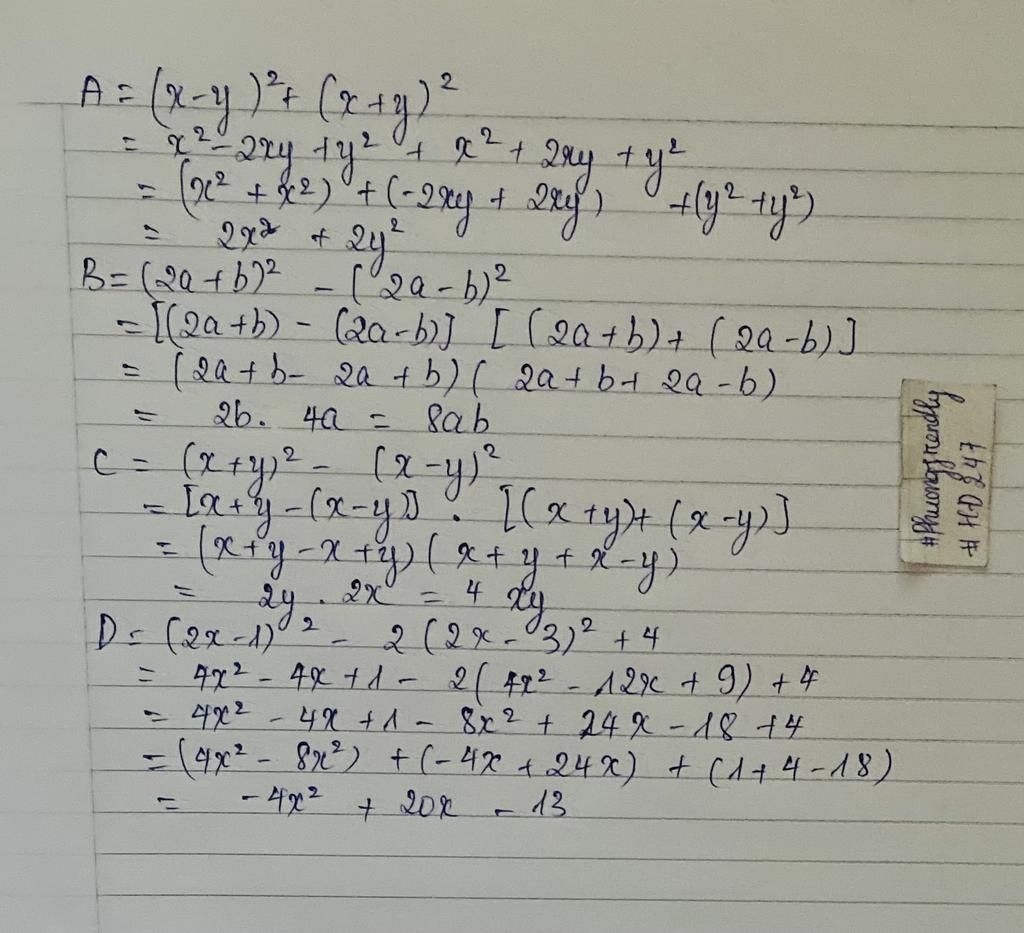 A = (x-y)² + (x+y)²
= x² - 2xy + y² + x² + 2xy + y²
= (x² + x²) + (-2xy + 2xy) + (y² + y²)
= 2x² + 2y²
B = (2a+b)² - (2a-b)²
= [(2a+b) - (2a-b)] [(2a+b) + (2a-b)]
= (2a+b-2a+b)(2a+b+2a-b)
= 2b. 4a = 8ab
C = (x+y)² - (x-y)²
= [x+y-(x-y)] . [(x+y)+(x-y)]
= (x+y-x+y)(x+y+x-y)
= 2y . 2x = 4xy
D = (2x-1)² - 2(2x-3)² + 4
= 4x² - 4x + 1 - 2(4x² - 12x + 9) + 4
= 4x² - 4x + 1 - 8x² + 24x - 18 + 4
= (4x² - 8x²) + (-4x + 24x) + (1+4-18)
= -4x² + 20x - 13
# HD 247